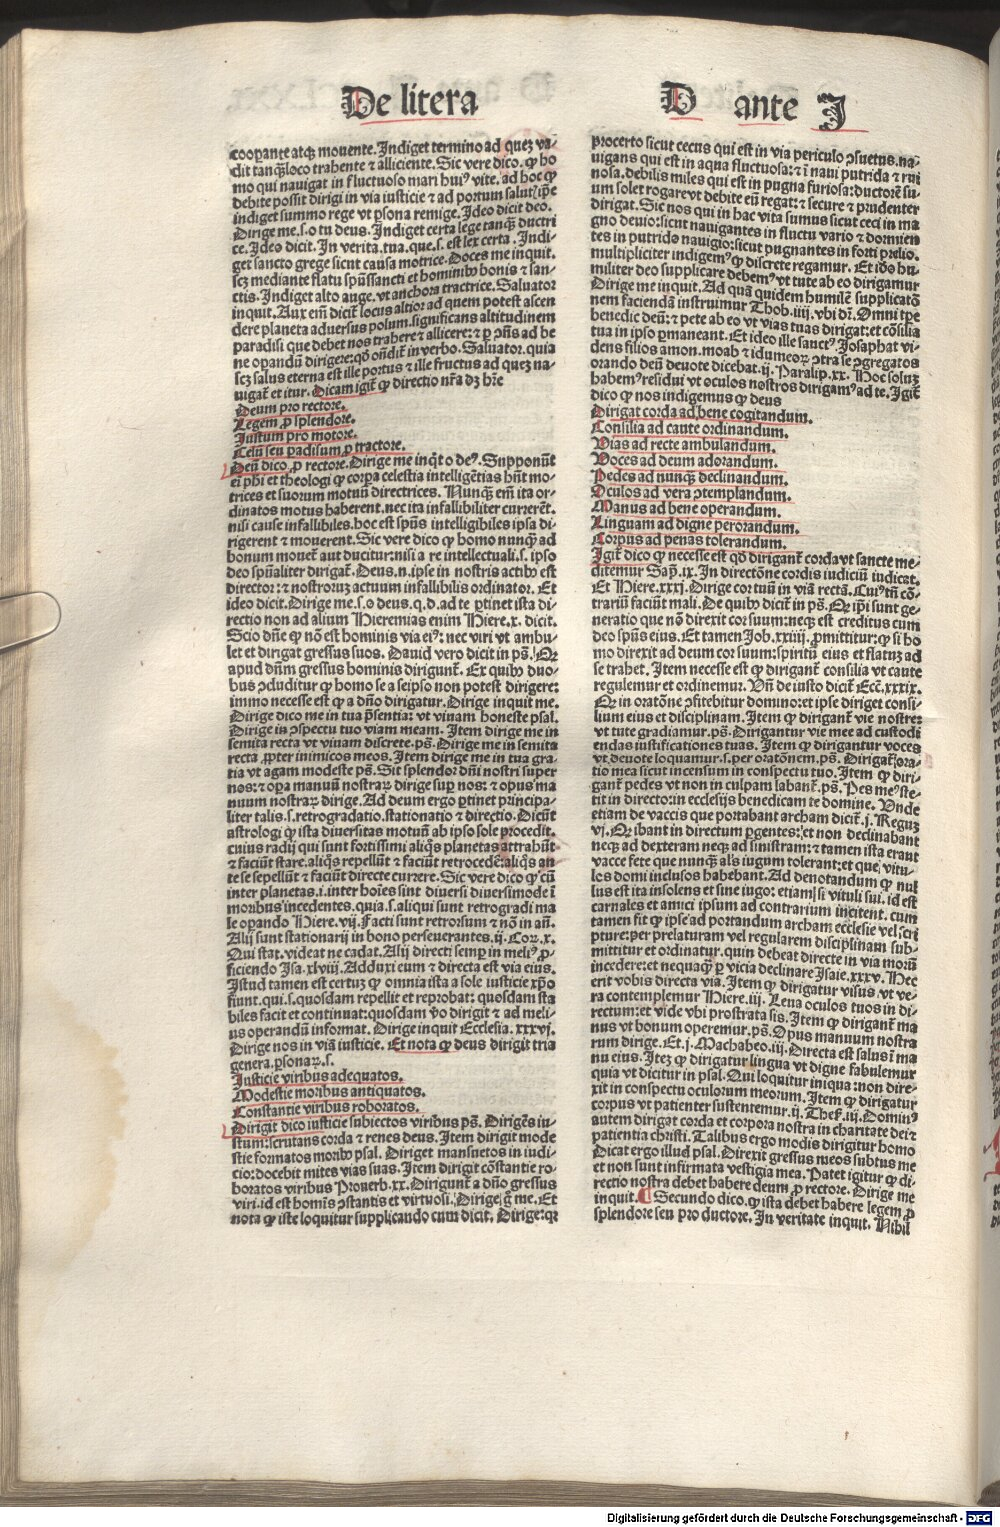 De litera
D ante J
cooꝑante atqꝫ mouente. Indiget termino ad quez va-
dit tanqꝫ loco trahente ⁊ alliciente. Sic vere dico. ꝙ ho
mo qui nauigat in fluctuoso mari huiꝰ vite. ad hoc ꝙ
debite possit dirigi in via iusticie ⁊ ad portum salut ip̄e
indiget summo rege vt ꝑsona remige. Ideo dicit deo.
Dirige me.s.o tu deus. Indiget certa lege tanqꝫ ductri
ce. Ideo dicit. In verita.tua.que.s.est lex certa. Indi-
get sancto grege sicut causa motrice. Doces me inquit.
scz mediante flatu spūssancti et hominibꝰ bonis ⁊ san-
ctis. Indiget alto auge. vt anchora tractrice. Saluator
inquit. Aux em̄ dicit̄ locus altior ad quem potest ascen
dere planeta aduersus polum. significans altitudinem
paradisi que debet nos trahere ⁊ allicere: ⁊ ꝑ ꝯn̄s ad be
ne opandū dirigere: qd̄ on̄dit̄ in verbo. Saluator. quia
scz salus eterna est ille portus ⁊ ille fructus ad quez na-
uigat̄ et itur. Dicam igit̄ ꝙ directio nr̄a dz hr̄e
Deum pro rectore.
Legem ꝓ splendore.
Justum pro motore.
Celū seu ꝑadisum ꝓ tractore.
Deū dico ꝓ rectore. Dirige me inq̄t o deꝰ. Supponūt
em̄ phi et theologi ꝙ corꝑa celestia intelligētias hn̄t mo-
trices et suorum motuū directrices. Nunqꝫ em̄ ita or-
dinatos motus haberent. nec ita infallibiliter currerēt.
nisi cause infallibiles. hoc est spūs intelligibiles ipsa di-
rigerent ⁊ mouerent. Sic vere dico ꝙ homo nunqꝫ ad
bonum mouet̄ aut ducitur: nisi a re intellectuali.s. ipso
deo spūaliter dirigat̄. Deus.n. ipse in nostris actibꝰ est
director: ⁊ nostroruz actuum infallibilis ordinator. Et
ideo dicit. Dirige me.s.o deus. q.d. ad te ꝑtinet ista di-
rectio non ad alium Hieremias enim Hiere.x. dicit.
Scio dn̄e ꝙ nō est hominis via eiꝰ: nec viri vt ambu-
let et dirigat gressus suos. Dauid vero dicit in ps̄. Qꝛ
apud dn̄m gressus hominis dirigunt̄. Ex quibꝰ duo-
bus ꝯcluditur ꝙ homo se a seipso non potest dirigere:
immo necesse est ꝙ a dn̄o dirigatur. Dirige inquit me.
Dirige dico me in tua pn̄sentia: vt viuam honeste psal.
Dirige in ꝯspectu tuo viam meam. Item dirige me in
semita recta vt viuam discrete. ps̄. Dirige me in semita
recta ꝓpter inimicos meos. Item dirige me in tua gra-
tia vt agam modeste ps̄. Sit splendor dn̄i nostri super
nos: ⁊ oꝑa manuū nostraꝝ dirige suꝑ nos: ⁊ opus ma
nuum nostraꝝ dirige. Ad deum ergo ꝑtinet principa-
liter talis.s.retrogradatio.stationatio ⁊ directio. Dicūt
astrologi ꝙ ista diuersitas motuū ab ipso sole procedit.
cuius radij qui sunt fortissimi aliq̄s planetas attrahūt
⁊ faciūt stare. aliq̄s repellūt ⁊ faciūt retrocedē: aliq̄s an
te se sepellūt ⁊ faciūt directe currere. Sic vere dico ꝙ cū
inter planetas.i.inter hoīes sint diuersi diuersimode ī
moribus īncedentes. quia.s.aliqui sunt retrogradi ma
le opando Hiere.vij. Facti sunt retrorsum ⁊ nō in an̄.
Alij sunt stationarij in bono perseuerantes.ij. Coꝝ.x.
Qui stat. videat ne cadat. Alij directi semꝑ in meliꝰ ꝓ-
ficiendo Isa.xlviij. Adduxi eum ⁊ directa est via eius.
Istud tamen est certuz ꝙ omnia ista a sole iusticie xp̄o
fiunt. qui.s.quosdam repellit et reprobat: quosdam sta
biles facit et continuat: quosdam v̄o dirigit ⁊ ad meli-
us operandū informat. Dirige inquit Ecclesia.xxxvj.
Dirige nos in viā iusticie. Et nota ꝙ deus dirigit tria
genera ꝑsonaꝝ.s.
Justicie viribus adequatos.
Modestie moribus antiquatos.
Constantie viribus roboratos.
Dirigit dico iusticie subiectos viribus ps̄. Dirigēs iu-
stum: scrutans corda ⁊ renes deus. Item dirigit mode
stie formatos moribꝰ psal. Diriget mansuetos in iudi-
cio: docebit mites vias suas. Item dirigit cōstantie ro-
boratos viribus Prouerb.xx. Dirigunt̄ a dn̄o gressus
viri. id est homīs ꝯstantis et virtuosi. Dirige g̊ me. Et
nota ꝙ iste loquitur supplicando cum dicit. Dirige: qꝛ
procerto sicut cecus qui est in via periculo ꝯsuetus. na-
uigans qui est in aqua fluctuosa: ⁊ ī naui putrida ⁊ rui
nosa. debilis miles qui est in pugna furiosa: ductorē su-
um solet rogare vt debite eū regat: ⁊ secure ⁊ prudenter
dirigat. Sic nos qui in hac vita sumus sicut ceci in ma
gno deuio: sicut nauigantes in fluctu vario ⁊ dormien
tes in putrido nauigio: sicut pugnantes in forti prelio.
multipliciter indigemꝰ ꝙ discrete regamur. Et ido hu-
militer deo supplicare debemꝰ vt tute ab eo dirigamur
Dirige me inquit. Ad quā quidem humilē supplicatō
nem faciendā instruimur Thob.iiij. vbi dr̄. Omni tꝑe
benedic deū: ⁊ pete ab eo vt vias tuas dirigat: et cōsilia
tua in ipso ꝑmaneant. Et ideo ille sanctꝰ. Josaphat vi-
dens filios amon. moab ⁊ idumeoꝝ ꝯtra se ꝯgregatos
orando deū deuote dicebat.ij. Paralip.xx. Hoc soluz
habemꝰ residui vt oculos nostros dirigamꝰ ad te. Igit̄
dico ꝙ nos indigemus ꝙ deus
Dirigat corda ad bene cogitandum.
Consilia ad caute ordinandum.
Vias ad recte ambulandum.
Voces ad deum adorandum.
Pedes ad nunqꝫ declinandum.
Oculos ad vera ꝯtemplandum.
Manus ad bene operandum.
Linguam ad digne perorandum.
Corpus ad penas tolerandum.
Igit̄ dico ꝙ necesse est qd̄ dirigant̄ corda vt sancte me-
ditemur Sap̄.ix. In directōne cordis iudiciū iudicat.
Et Hiere.xxxj. Dirige cor tuū in viā rectā. Cuiꝰ tn̄ cō-
trariū faciūt mali. De quibꝰ dicit̄ in ps̄. Qꝛ ip̄i sunt ge-
neratio que nō direxit cor suum: necqꝫ est creditus cum
deo spūs eius. Et tamen Job.xxiiij. ꝓmittitur: ꝙ si ho
mo direxit ad deum cor suum: spiritū eius et flatuz ad
se trahet. Item necesse est ꝙ dirigant̄ consilia vt caute
regulemur et ordinemur. Vn̄ de iusto dicit̄ Ecc̄.xxxix.
Et in oratōne ꝯfitebitur domino: et ipse diriget consi-
lium eius et disciplinam. Item ꝙ dirigant̄ vie nostre:
vt tute gradiamur. ps̄. Dirigantur vie mee ad custodi
endas iustificationes tuas. Item ꝙ dirigantur voces
vt deuote loquamur.s.per oratōnem. ps̄. Dirigat̄ ora-
tio mea sicut incensum in conspectu tuo. Item ꝙ diri-
gant̄ pedes vt non in culpam labant̄. ps̄. Pes meꝰ ste-
tit in directo: in ecclesijs benedicam te domine. Unde
etiam de vaccis que portabant archam dicit̄.j. Reguz
vj. Qꝛ ibant in directum ꝑgentes: et non declinabant
necqꝫ ad dexteram necqꝫ ad sinistram: ⁊ tamen ista erant
vacce fete que nunqꝫ als̄ iugum tolerant: et que vitu-
los domi inclusos habebant. Ad denotandum ꝙ nul
lus est ita insolens et sine iugo: etiam si vituli sui. id est
carnales et amici ipsum ad contrarium incitent. cum
tamen fit ꝙ ipse ad portandum archam ecclesie vel scri
pture: per prelaturam vel regularem disciplinam sub-
mittitur et ordinatur. quin debeat directe in via morū
incedere: et nequaqꝫ ꝑ vicia declinare Isaie.xxxv. Hec
erit vobis directa via. Item ꝙ dirigatur visus vt ve-
ra contemplemur Hiere.iij. Leua oculos tuos in di-
rectum: et vide vbi prostrata sis. Item ꝙ dirigant̄ ma
nus vt bonum operemur. ps̄. Opus manuum nostra
rum dirige. Et.j. Machabeo.iij. Directa est salus ī ma
nu eius. Itez ꝙ dirigatur lingua vt digne fabulemur
quia vt dicitur in psal. Qui loquitur iniqua: non dire-
xit in conspectu oculorum meorum. Item ꝙ dirigatur
corpus vt patienter sustentemur.ij. Thes̄.iij. Dominꝰ
autem dirigat corda et corpora nostra in charitate dei ⁊
patientia christi. Talibus ergo modis dirigitur homo
Dicat ergo illud psal. Direxit gressus meos subtus me
et non sunt infirmata vestigia mea. Patet igitur ꝙ di-
rectio nostra debet habere deum ꝓ rectore. Dirige me
inquit. ¶ Secundo dico. ꝙ ista debet habere legem ꝓ
splendore seu pro ductore. In veritate inquit. Nihil
Digitalisierung gefördert durch die Deutsche Forschungsgemeinschaft - DFG